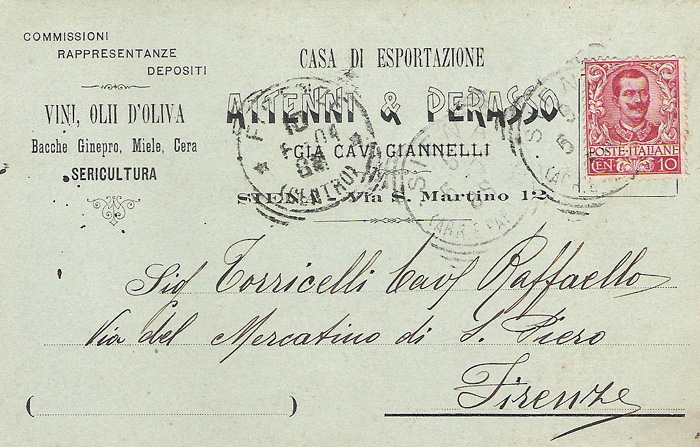 COMMISSIONI
RAPPRESENTANZE
DEPOSITI
VINI, OLII D'OLIVA
Bacche Ginepro, Miele, Cera
SERICULTURA
CASA DI ESPORTAZIONE
ATTENNI & PERASSO
GIÀ CAV. GIANNELLI
SIENA - Via S. Martino 12
POSTE·ITALIANE
CEN 10
(CENTRO)
Sig Torricelli Cav Raffaello
Via del Mercatino di S. Piero
Firenze
( )